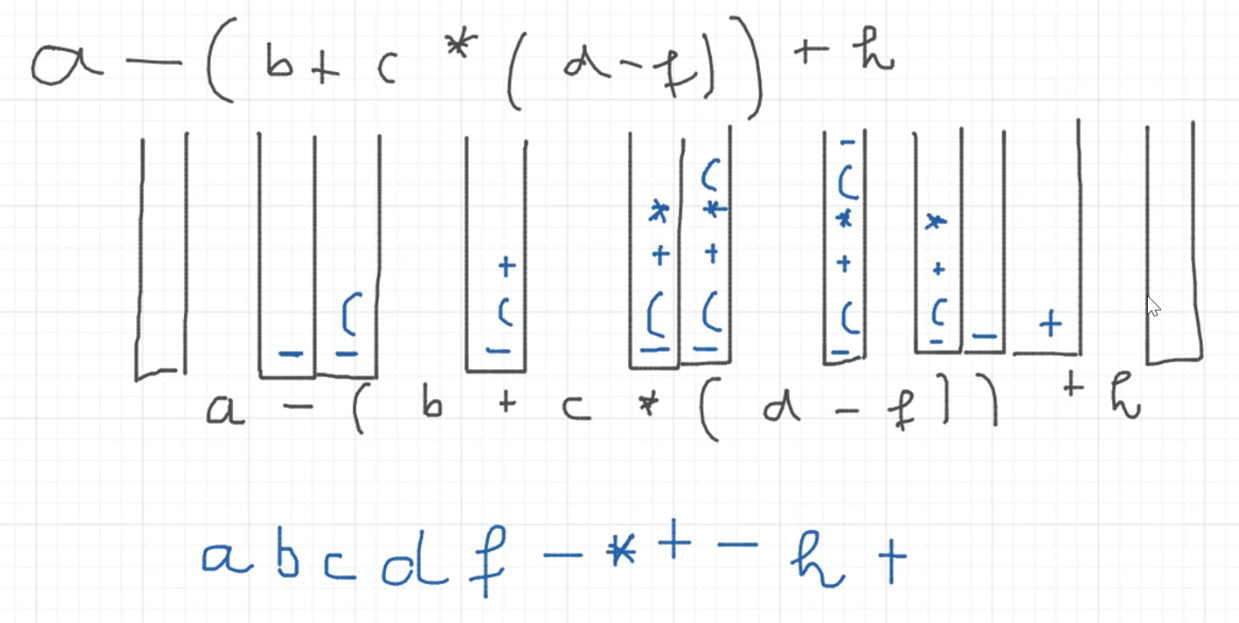 a - ( b + c * ( d - f ) ) + h
-
* (
* + ( -
+ * + ( * + * +
( ( - ( ( ( ( +
- - - - - - -
a - ( b + c * ( d - f ) ) + h
a b c d f - * + - h +